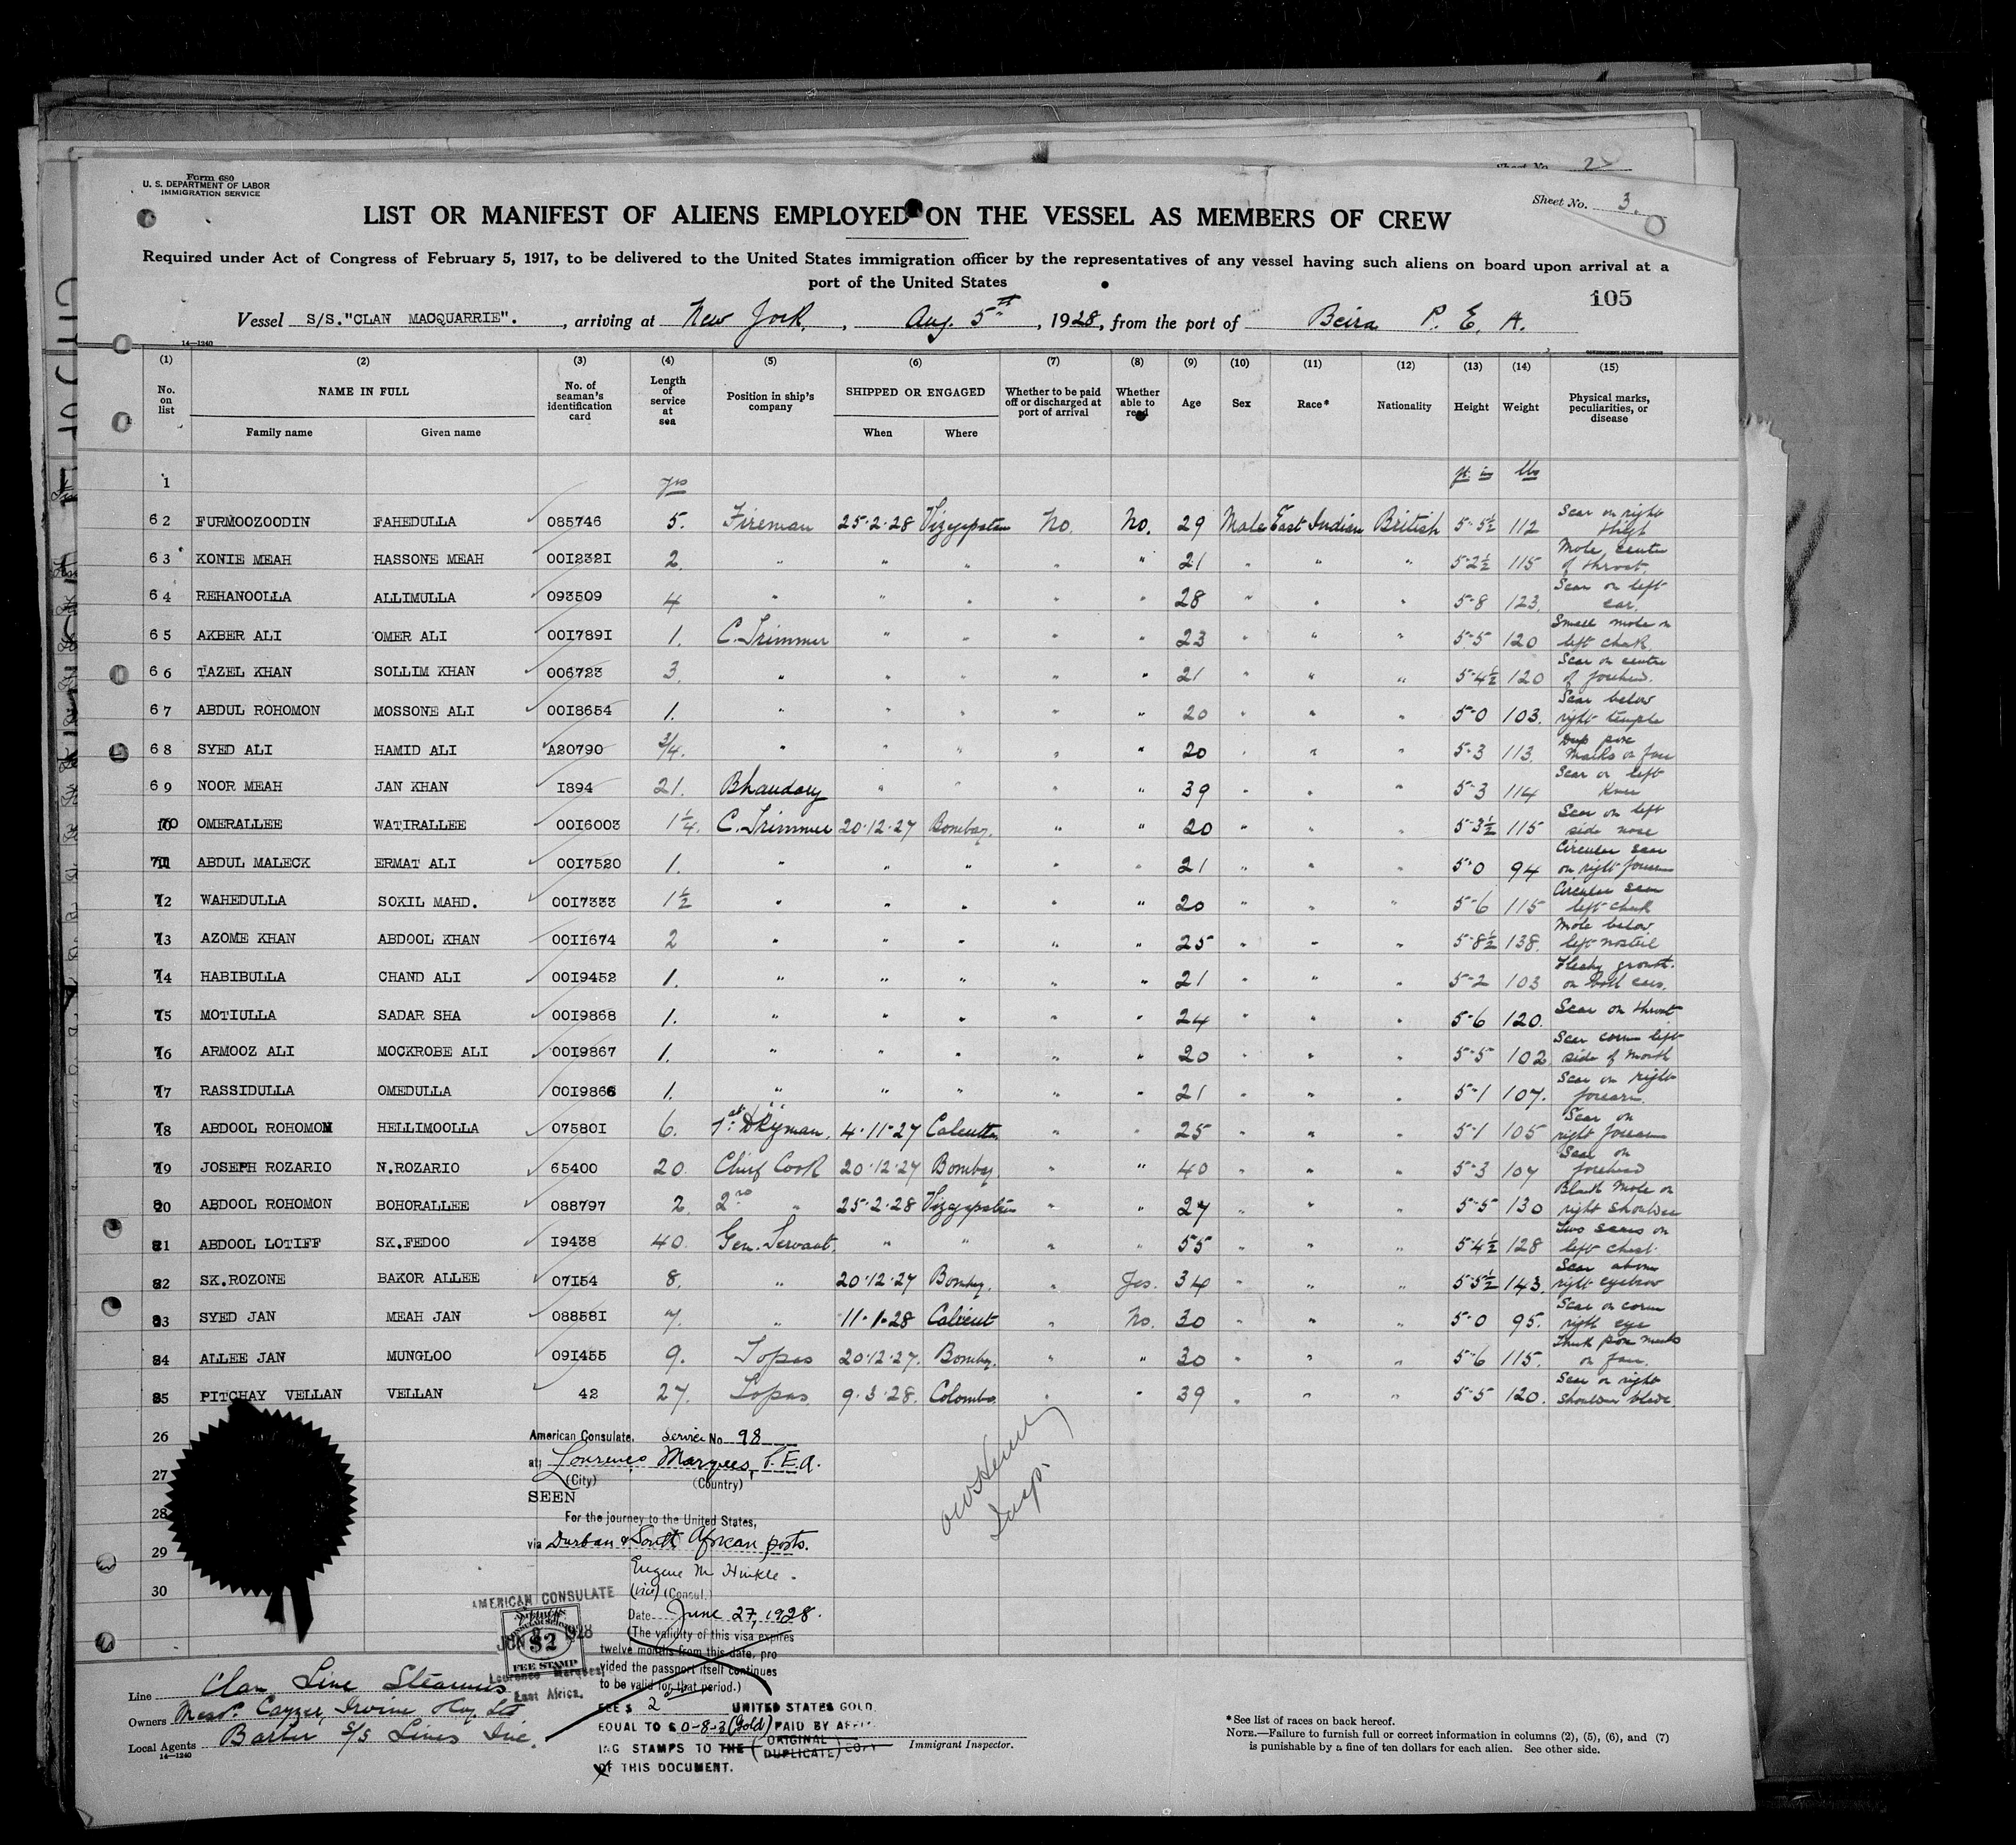 Form 680
U. S. DEPARTMENT OF LABOR
IMMIGRATION SERVICE
Sheet No. 2
Sheet No. 3.
LIST OR MANIFEST OF ALIENS EMPLOYED ON THE VESSEL AS MEMBERS OF CREW
Required under Act of Congress of February 5, 1917, to be delivered to the United States immigration officer by the representatives of any vessel having such aliens on board upon arrival at a
port of the United States
105
Vessel S/S."CLAN MACQUARRIE". , arriving at New York, , Aug. 5th , 1928, from the port of Beira P. E. A.
14—1240
(1) (2) (3) (4) (5) (6) (7) (8) (9) (10) (11) (12) (13) (14) (15)
No. on list NAME IN FULL No. of seaman's identification card Length of service at sea Position in ship's company SHIPPED OR ENGAGED Whether to be paid off or discharged at port of arrival Whether able to read Age Sex Race* Nationality Height Weight Physical marks, peculiarities, or disease
Family name Given name When Where
1 yrs ft in lbs
62 FURMOOZOODIN FAHEDULLA 085746 5. Fireman 25-2-28 Vizgapatam No. No. 29 Male East Indian British 5-5½ 112 Scar on right thigh
63 KONIE MEAH HASSONE MEAH 0012321 2. " " " " " 21 " " " 5-2½ 115 Mole centre of throat.
64 REHANOOLLA ALLIMULLA 093509 4 " " " " " 28 " " " 5-8 123. Scar on left ear.
65 AKBER ALI OMER ALI 0017891 1. C. Trimmer " " " " 23 " " " 5-5 120 Small mole on left cheek
66 TAZEL KHAN SOLLIM KHAN 006723 3. " " " " " 21 " " " 5-4½ 120 Scar on centre of forehead.
67 ABDUL ROHOMON MOSSONE ALI 0018654 1. " " " " " 20 " " " 5-0 103. Scar below right temple
68 SYED ALI HAMID ALI A20790 3/4. " " " " " 20 " " " 5-3 113. Deep pox marks on face
69 NOOR MEAH JAN KHAN 1894 21. Bhandary " " " " 39 " " " 5-3 114 Scar on left knee
70 OMERALLEE WATIRALLEE 0016003 1¼. C. Trimmer 20-12-27 Bombay. " " 20 " " " 5-3½ 115 Scar on left side nose
71 ABDUL MALECK ERMAT ALI 0017520 1. " " " " " 21 " " " 5-0 94 Circular scar on right forearm
72 WAHEDULLA SOKIL MAHD. 0017333 1½ " " " " " 20 " " " 5-6 115 Circular scar left cheek
73 AZOME KHAN ABDOOL KHAN 0011674 2 " " " " " 25 " " " 5-8½ 138. Mole below left nostril
74 HABIBULLA CHAND ALI 0019452 1. " " " " " 21 " " " 5-2 103 Fleshy growth on both ears.
75 MOTIULLA SADAR SHA 0019868 1. " " " " " 24 " " " 5-6 120. Scar on throat
76 ARMOOZ ALI MOCKROBE ALI 0019867 1. " " " " " 20 " " " 5-5 102 Scar corner left side of mouth
77 RASSIDULLA OMEDULLA 0019866 1. " " " " " 21 " " " 5-1 107. Scar on right forearm.
78 ABDOOL ROHOMON HELLIMOOLLA 075801 6. 1st Dkyman. 4-11-27 Calcutta " " 25 " " " 5-1 105 Scar on right forearm
79 JOSEPH ROZARIO N.ROZARIO 65400 20. Chief Cook 20-12-27 Bombay. " " 40 " " " 5-3 107 Scar on forehead
80 ABDOOL ROHOMON BOHORALLEE 088797 2. 2nd " 25-2-28 Vizgapatam " " 27 " " " 5-5 130 Black mole on right shoulder
81 ABDOOL LOTIFF SK.FEDOO 19438 40. Gen. Servant. " " " " 55 " " " 5-4½ 128 Two scars on left chest.
82 SK.ROZONE BAKOR ALLEE 07154 8. " 20-12-27 Bombay. " Yes. 34 " " " 5-5½ 143. Scar above right eyebrow
83 SYED JAN MEAH JAN 088581 7. " 11-1-28 Calicut " No. 30 " " " 5-0 95. Scar on corner right eye
84 ALLEE JAN MUNGLOO 091455 9. Topas 20-12-27. Bombay. " " 30 " " " 5-6 115. Thick pox marks on face.
85 PITCHAY VELLAN VELLAN 42 27. Topas 9-3-28. Colombo. " " 39 " " " 5-5 120. Scar on right shoulder blade.
26
27
28
29
30
American Consulate, Service No 98
at Lourenço Marques, P.E.A.
(City) (Country)
SEEN
For the journey to the United States,
via Durban & South African ports.
Eugene M. Hinkle.
(Vice) (Consul.)
Date June 27, 1928.
(The validity of this visa expires
twelve months from this date, pro
vided the passport itself continues
to be valid for that period.)
FEE $ 2 UNITED STATES GOLD.
EQUAL TO £ 0-8-3 (Gold) PAID BY AFFIX
ING STAMPS TO THE (ORIGINAL DUPLICATE) COPY
OF THIS DOCUMENT.
AMERICAN CONSULATE
JUN 1928
$2
FEE STAMP
Lourenco Marques,
East Africa.
Insp.
Line Clan Line Steamers
Owners Messrs. Cayzer, Irvine & Coy. Ltd
Local Agents Barber S/S Lines Inc.
14—1240
Immigrant Inspector.
*See list of races on back hereof.
NOTE.—Failure to furnish full or correct information in columns (2), (5), (6), and (7)
is punishable by a fine of ten dollars for each alien. See other side.